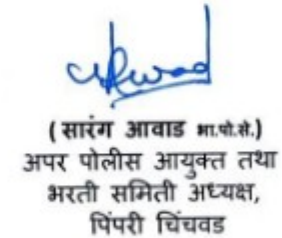 (सारंग आवाड भा.पो.से.)
अपर पोलीस आयुक्त तथा
भरती समिती अध्यक्ष,
पिंपरी चिंचवड